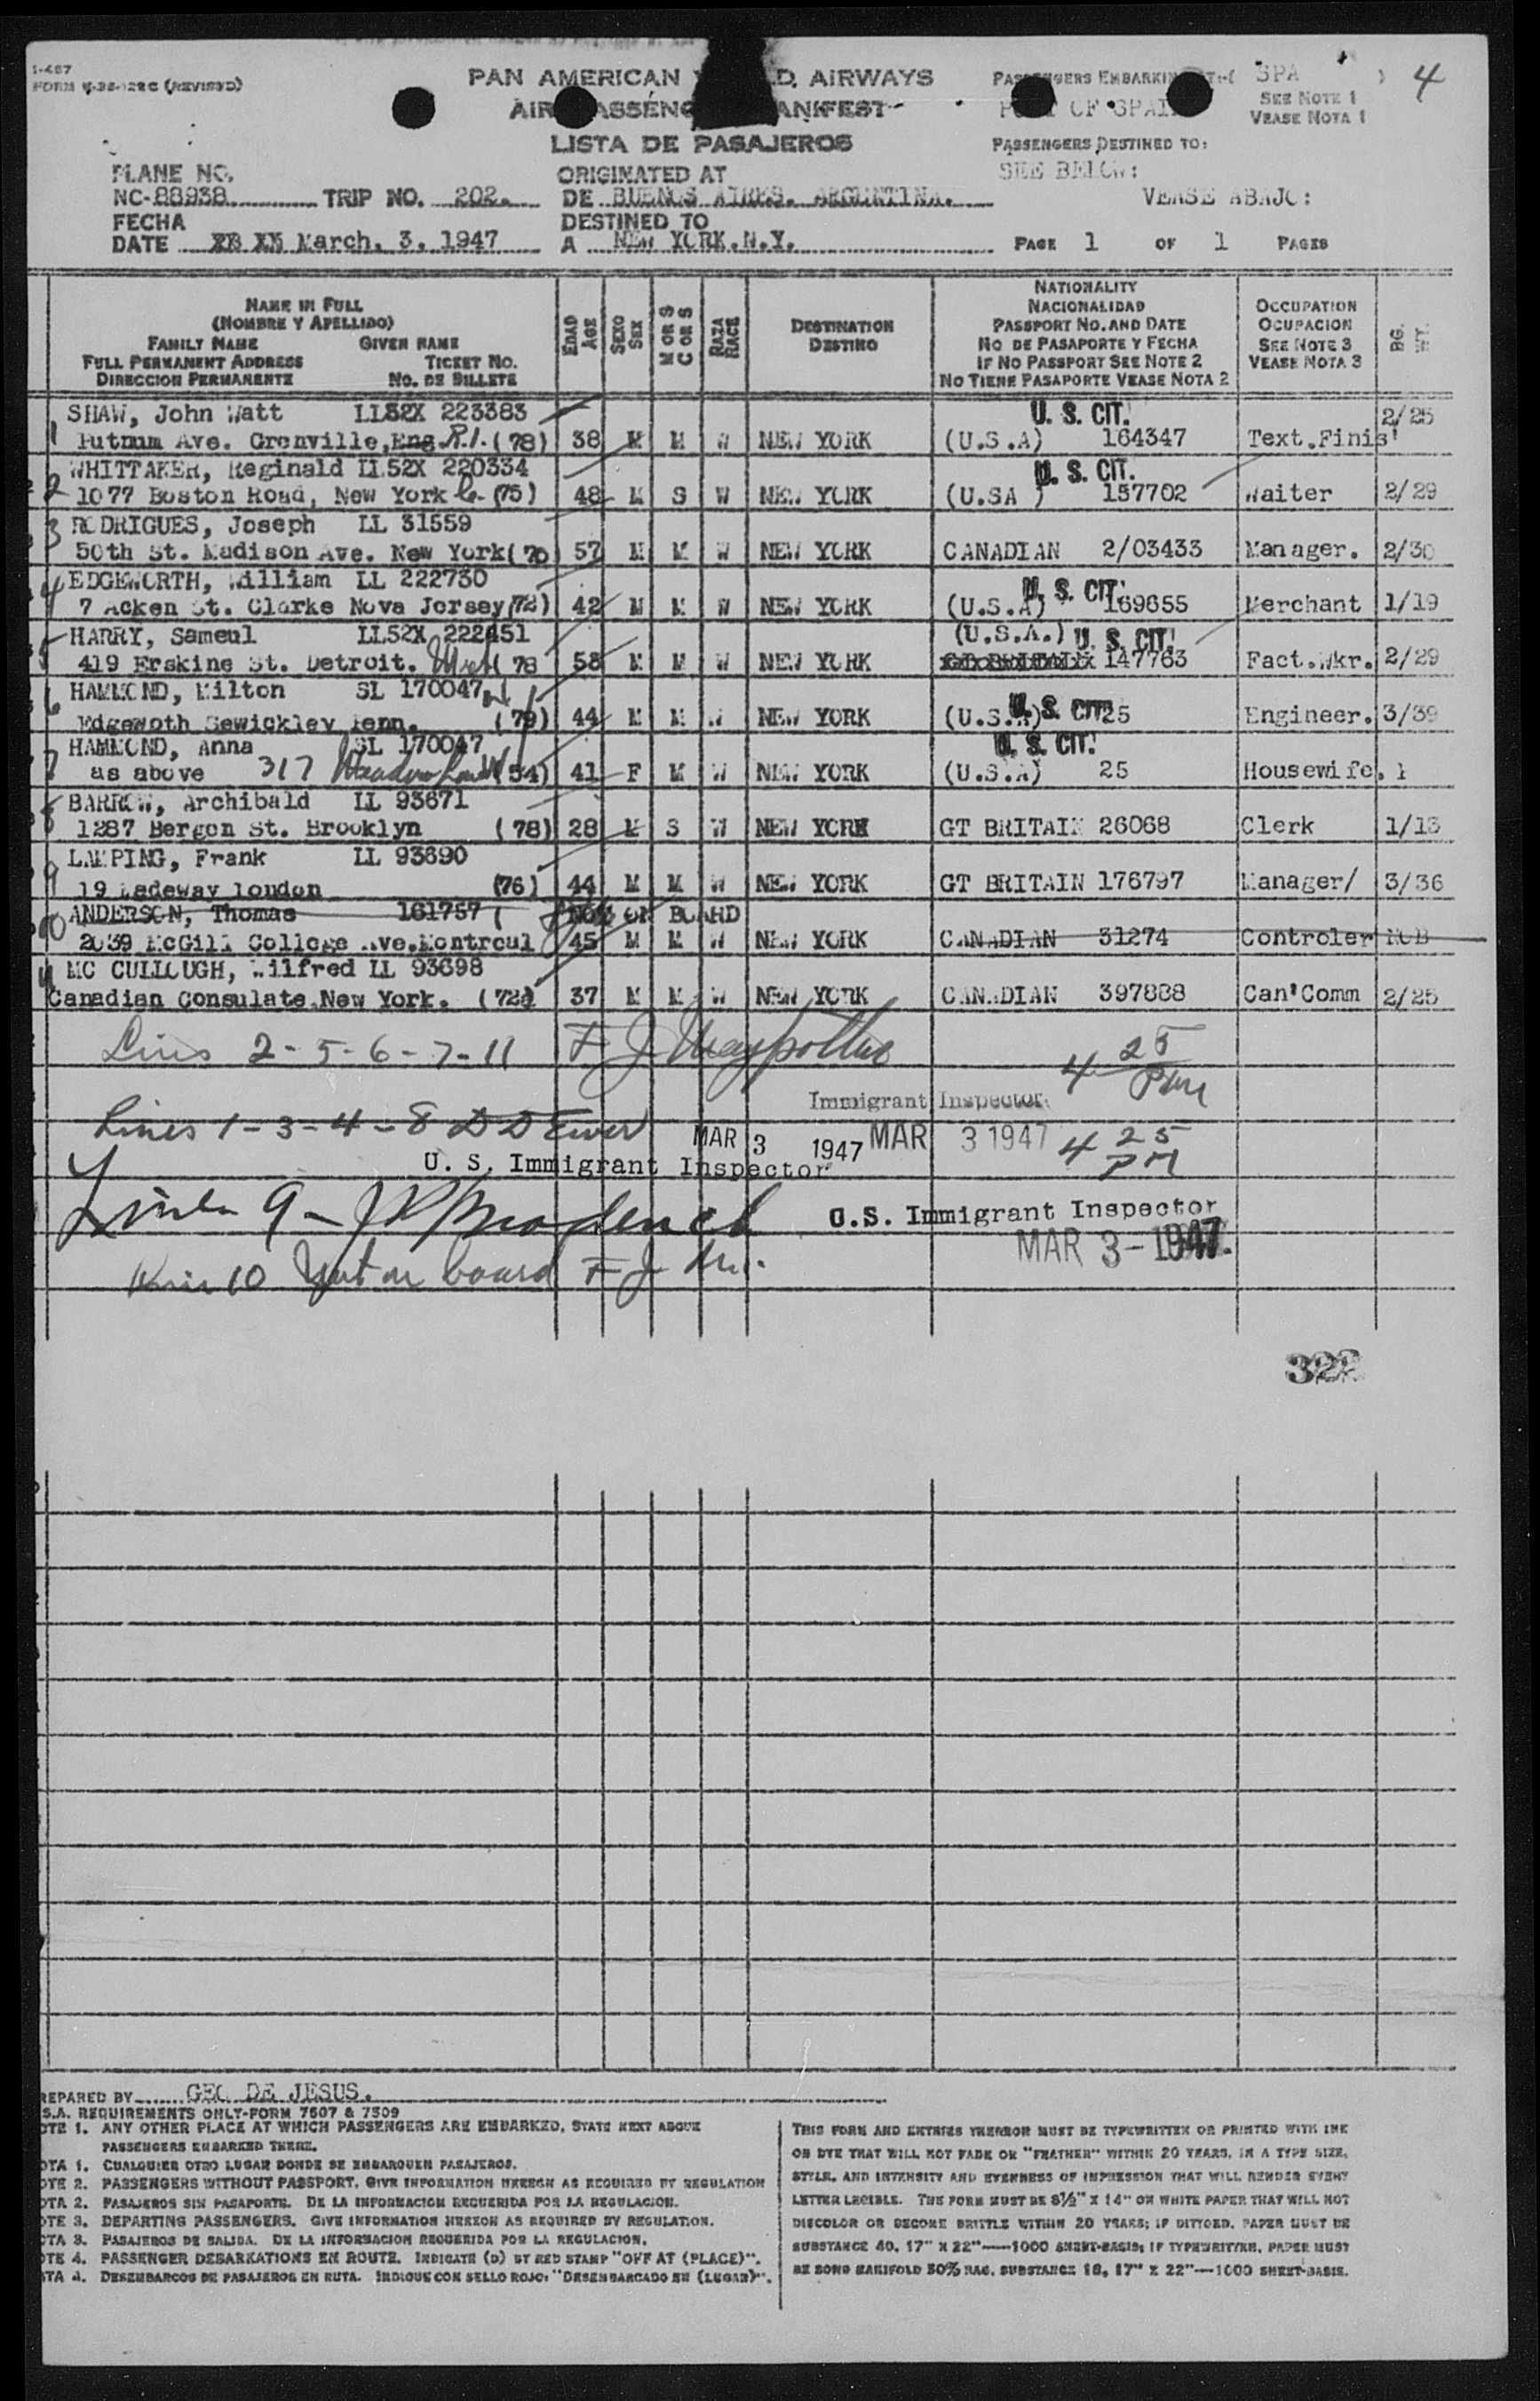 I-467
FORM (REVISED)
PAN AMERICAN AIRWAYS
LISTA DE PASAJEROS
PASSENGERS
SPA ) 4
SEE NOTE 1
VEASE NOTA 1
PASSENGERS DESTINED TO:
SEE BELOW:
VEASE ABAJO:
PLANE NO. ORIGINATED AT
NC-88938 TRIP NO. 202. DE BUENOS AIRES. ARGENTINA.
FECHA DESTINED TO
DATE March. 3. 1947 A NEW YORK.N.Y. PAGE 1 OF 1 PAGES
NAME IN FULL
(NOMBRE Y APELLIDO)
FAMILY NAME GIVEN NAME
FULL PERMANENT ADDRESS TICKET NO.
DIRECCION PERMANENTE NO. DE BILLETE
EDAD AGE
SEXO SEX
M OR S C OR S
RAZA RACE
DESTINATION
DESTINO
NATIONALITY
NACIONALIDAD
PASSPORT NO. AND DATE
NO DE PASAPORTE Y FECHA
IF NO PASSPORT SEE NOTE 2
NO TIENE PASAPORTE VEASE NOTA 2
OCCUPATION
OCUPACION
SEE NOTE 3
VEASE NOTA 3
BG. WT.
SHAW, John Watt LL52X 223383 U. S. CIT. 2/25
1 Putnum Ave. Grenville,Eng R.I. (78) 38 M M W NEW YORK (U.S.A) 164347 Text.Finis'
WHITTAKER, Reginald LL52X 220334 U. S. CIT.
2 1077 Boston Road, New York (75) 48 M S W NEW YORK (U.SA ) 157702 Waiter 2/29
3 RODRIGUES, Joseph LL 31559
50th St. Madison Ave. New York(70) 57 M M W NEW YORK CANADIAN 2/03433 Manager. 2/30
4 EDGEWORTH, William LL 222730 U. S. CIT.
7 Acken St. Clarke Nova Jersey(72) 42 M M W NEW YORK (U.S.A) 169655 Merchant 1/19
5 HARRY, Sameul LL52X 222451 (U.S.A.) U. S. CIT.
419 Erskine St. Detroit. Mich (78 58 M M W NEW YORK GT BRITAIN 147763 Fact.Wkr. 2/29
6 HAMMOND, Milton SL 170047 U. S. CIT.
Edgewoth Sewickley Penn. (79) 44 M M W NEW YORK (U.S.A) 25 Engineer. 3/39
7 HAMMOND, Anna SL 170047 U. S. CIT.
as above 317 (54) 41 F M W NEW YORK (U.S.A) 25 Housewife. 1
8 BARROW, Archibald LL 93671
1287 Bergen St. Brooklyn (78) 28 M S W NEW YORK GT BRITAIN 26068 Clerk 1/13
9 LAMPING, Frank LL 93690
19 Ladeway london (76) 44 M M W NEW YORK GT BRITAIN 176797 Manager/ 3/36
10 ANDERSON, Thomas 161757 ( NOT ON BOARD
2039 McGill College Ave.Montreal 45 M M W NEW YORK CANADIAN 31274 Controler NOB
11 MC CULLOUGH, Wilfred LL 93698
Canadian Consulate.New York. (72) 37 M M W NEW YORK CANADIAN 397888 Can'Comm 2/25
Lines 2-5-6-7-11 F J 4 25 PM
Immigrant Inspector.
Lines 1-3-4-8 MAR 3 1947 MAR 3 1947 4 25 PM
U. S. Immigrant Inspector
Line 9- U.S. Immigrant Inspector
MAR 3-1947.
Line 10 Not on board F J M.
322
REPARED BY GEO DE JESUS.
S.A. REQUIREMENTS ONLY-FORM 7507 & 7509
OTE 1. ANY OTHER PLACE AT WHICH PASSENGERS ARE EMBARKED, STATE NEXT ABOVE
PASSENGERS EMBARKED THERE.
OTA 1. CUALQUIER OTRO LUGAR DONDE SE EMBARQUEN PASAJEROS.
OTE 2. PASSENGERS WITHOUT PASSPORT. GIVE INFORMATION HEREON AS REQUIRED BY REGULATION
OTA 2. PASAJEROS SIN PASAPORTE. DE LA INFORMACION REQUERIDA POR LA REGULACION.
OTE 3. DEPARTING PASSENGERS. GIVE INFORMATION HEREON AS REQUIRED BY REGULATION.
OTA 3. PASAJEROS DE SALIDA. DE LA INFORMACION REQUERIDA POR LA REGULACION.
OTE 4. PASSENGER DEBARKATIONS EN ROUTE. INDICATE (D) BY RED STAMP "OFF AT (PLACE)".
OTA 4. DESEMBARCOS DE PASAJEROS EN RUTA. INDIQUE CON SELLO ROJO: "DESEMBARCADO EN (LUGAR)".
THIS FORM AND ENTRIES THEREON MUST BE TYPEWRITTEN OR PRINTED WITH INK
OR DYE THAT WILL NOT FADE OR "FEATHER" WITHIN 20 YEARS, IN A TYPE SIZE,
STYLE, AND INTENSITY AND EVENNESS OF IMPRESSION THAT WILL RENDER EVERY
LETTER LEGIBLE. THE FORM MUST BE 8½" X 14" ON WHITE PAPER THAT WILL NOT
DISCOLOR OR BECOME BRITTLE WITHIN 20 YEARS; IF DITTOED, PAPER MUST BE
SUBSTANCE 40, 17" X 22"—1000 SHEET-BASIS; IF TYPEWRITTEN, PAPER MUST
BE BOND MANIFOLD 50% RAG, SUBSTANCE 16, 17" X 22"—1000 SHEET-BASIS.